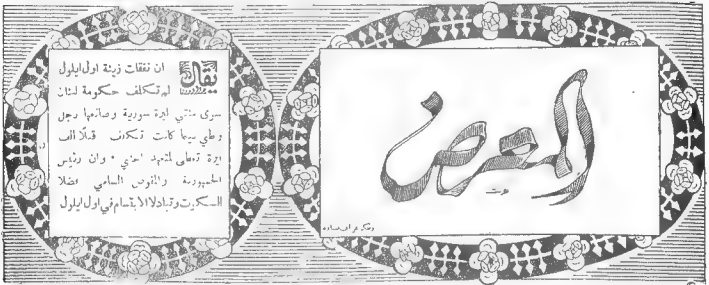 المعرض
يقال ان نفقات زينة اول ايلول
لم تكلف حكومة لبنان
سوى مئتي ليرة سورية وصاحبها رجل
وطني بينما كانت تكلف قبلاً الف
ليرة تعطى لمتعهد اجنبي • وان رئيس
الجمهورية والمفوض السامي فضلا
السكوت وتبادلا الابتسام في اول ايلول